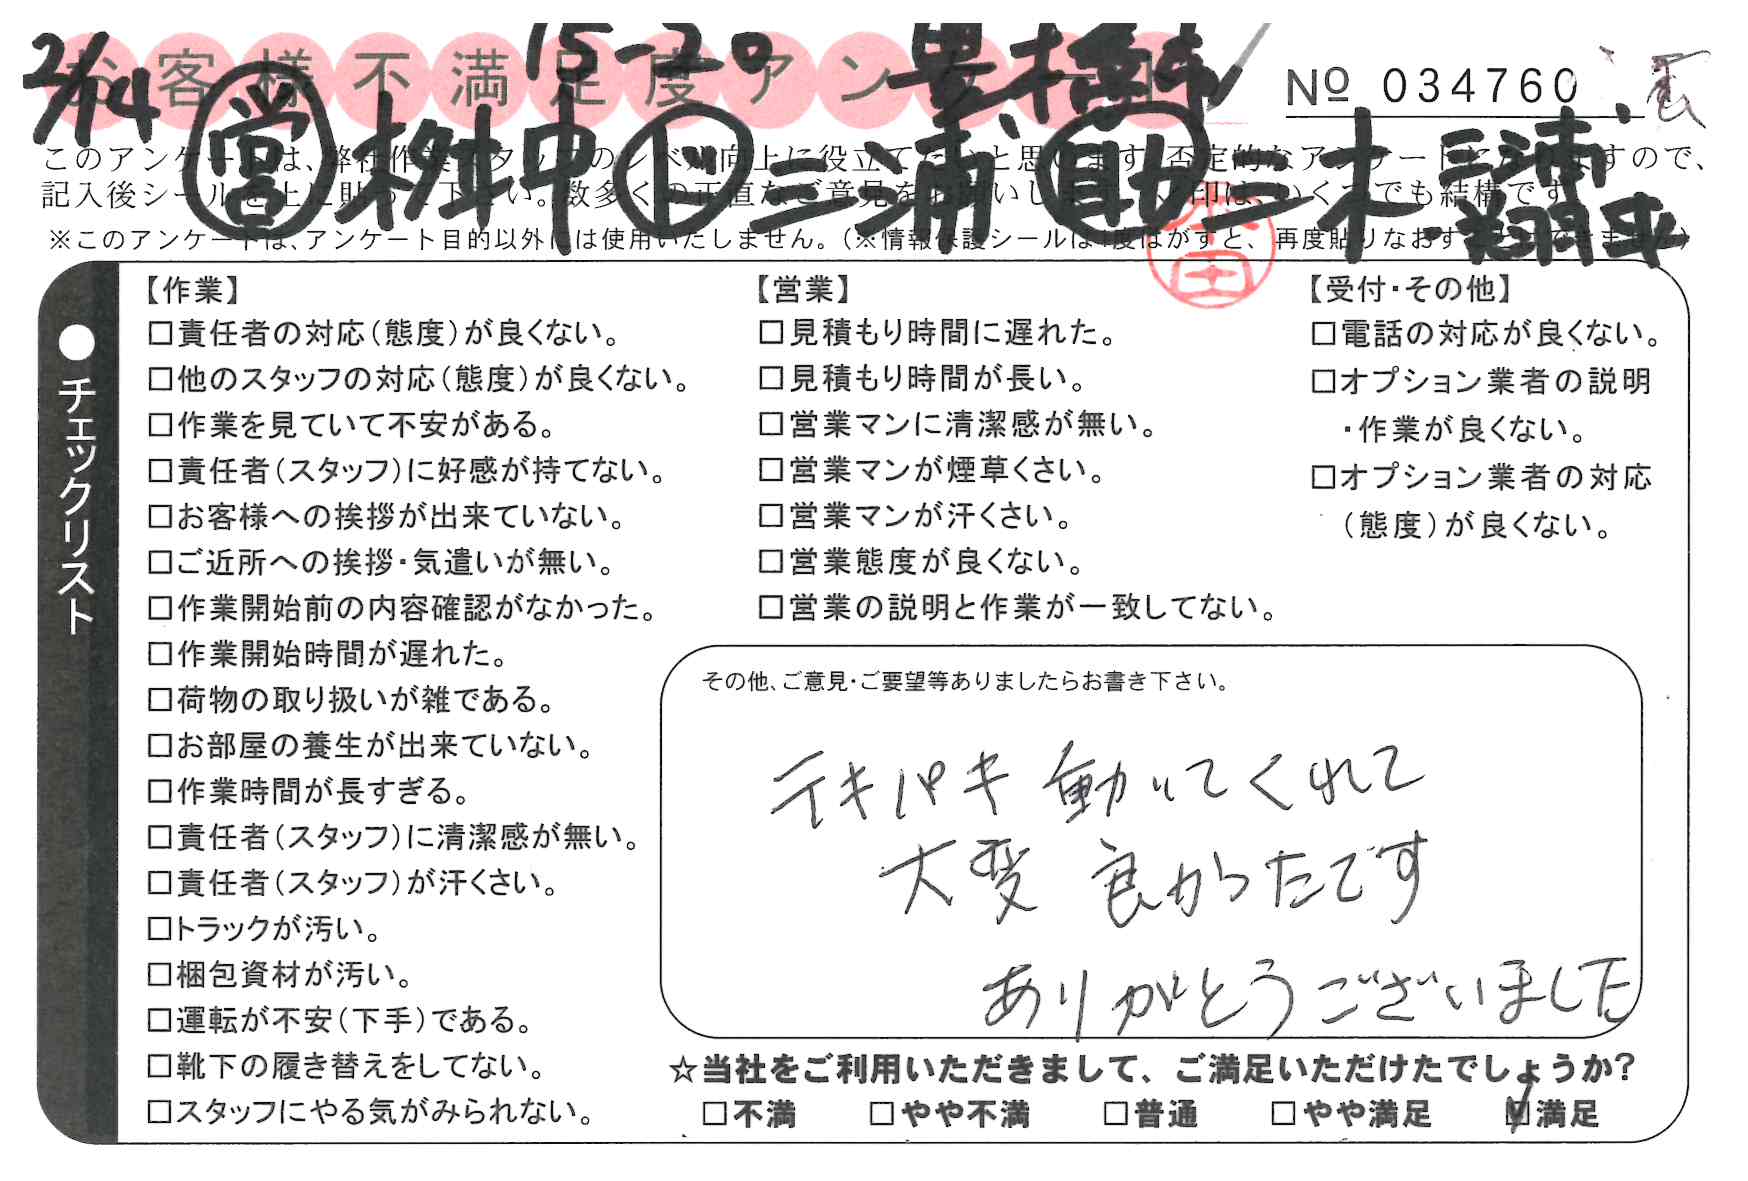 お客様不満足度アンケート
2/14
15-20
豊橋市
№ 034760
営 桝中 ド 三浦 助 三木 三浦
翔平
このアンケートは、弊社作業スタッフのレベル向上に役立てたいと思います。否定的なアンケートになりますので、
記入後シールを上に貼って下さい。数多くの正直なご意見をお願いします。○印は、いくつでも結構です。
※このアンケートは、アンケート目的以外には使用いたしません。（※情報保護シールは1度はがすと、再度貼りなおすことはできません）
●チェックリスト
【作業】
□責任者の対応（態度）が良くない。
□他のスタッフの対応（態度）が良くない。
□作業を見ていて不安がある。
□責任者（スタッフ）に好感が持てない。
□お客様への挨拶が出来ていない。
□ご近所への挨拶・気遣いが無い。
□作業開始前の内容確認がなかった。
□作業開始時間が遅れた。
□荷物の取り扱いが雑である。
□お部屋の養生が出来ていない。
□作業時間が長すぎる。
□責任者（スタッフ）に清潔感が無い。
□責任者（スタッフ）が汗くさい。
□トラックが汚い。
□梱包資材が汚い。
□運転が不安（下手）である。
□靴下の履き替えをしてない。
□スタッフにやる気がみられない。
【営業】
□見積もり時間に遅れた。
□見積もり時間が長い。
□営業マンに清潔感が無い。
□営業マンが煙草くさい。
□営業マンが汗くさい。
□営業態度が良くない。
□営業の説明と作業が一致してない。
【受付・その他】
□電話の対応が良くない。
□オプション業者の説明
・作業が良くない。
□オプション業者の対応
（態度）が良くない。
その他、ご意見・ご要望等ありましたらお書き下さい。
テキパキ動いてくれて
大変 良かったです
ありがとうございました
☆当社をご利用いただきまして、ご満足いただけたでしょうか？
□不満 □やや不満 □普通 □やや満足 ☑満足